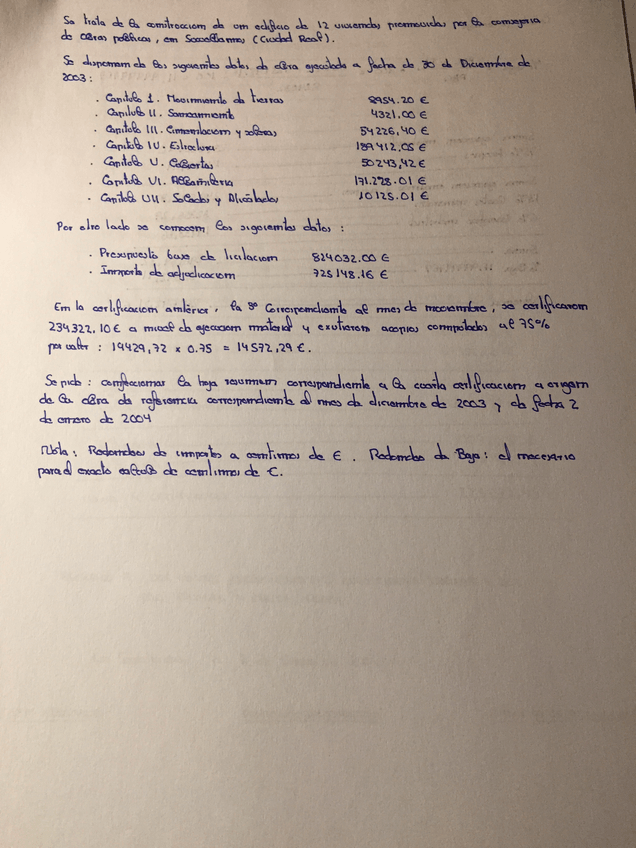 Se trata de la construccion de un edificio de 12 viviendas promovidas por la consejeria
de Obras publicas, en Socuellamos (Ciudad Real).
Se disponen de los siguientes datos de obra ejecutada a fecha de 30 de Diciembre de
2003:
· Capitulo I. Movimiento de tierras 8954.20 €
· Capitulo II. Saneamiento 4321.00 €
· Capitulo III. Cimentacion y soleras 54226,40 €
· Capitulo IV. Estructura 189412,05 €
· Capitulo V. Cubiertas 50243,42 €
· Capitulo VI. Albañileria 171.298.01 €
· Capitulo VII. Solados y Alicatados 10125.01 €
Por otro lado se conocen los siguientes datos:
· Presupuesto base de licitacion 824032.00 €
· Importe de adjudicacion 725148.16 €
En la certificacion anterior, la 3ª correspondiente al mes de noviembre, se certificaron
234322.10 € a nivel de ejecucion material y existieron acopios computados al 75%
por valor: 19429,72 x 0.75 = 14572,29 €.
Se pide: confeccionar la hoja resumen correspondiente a la cuarta certificacion a origen
de la obra de referencia correspondiente al mes de diciembre de 2003 y de fecha 2
de enero de 2004
Nota: Redondeo de importes a centimos de €. Redondeo de Baja: el necesario
para el exacto calculo de centimos de €.